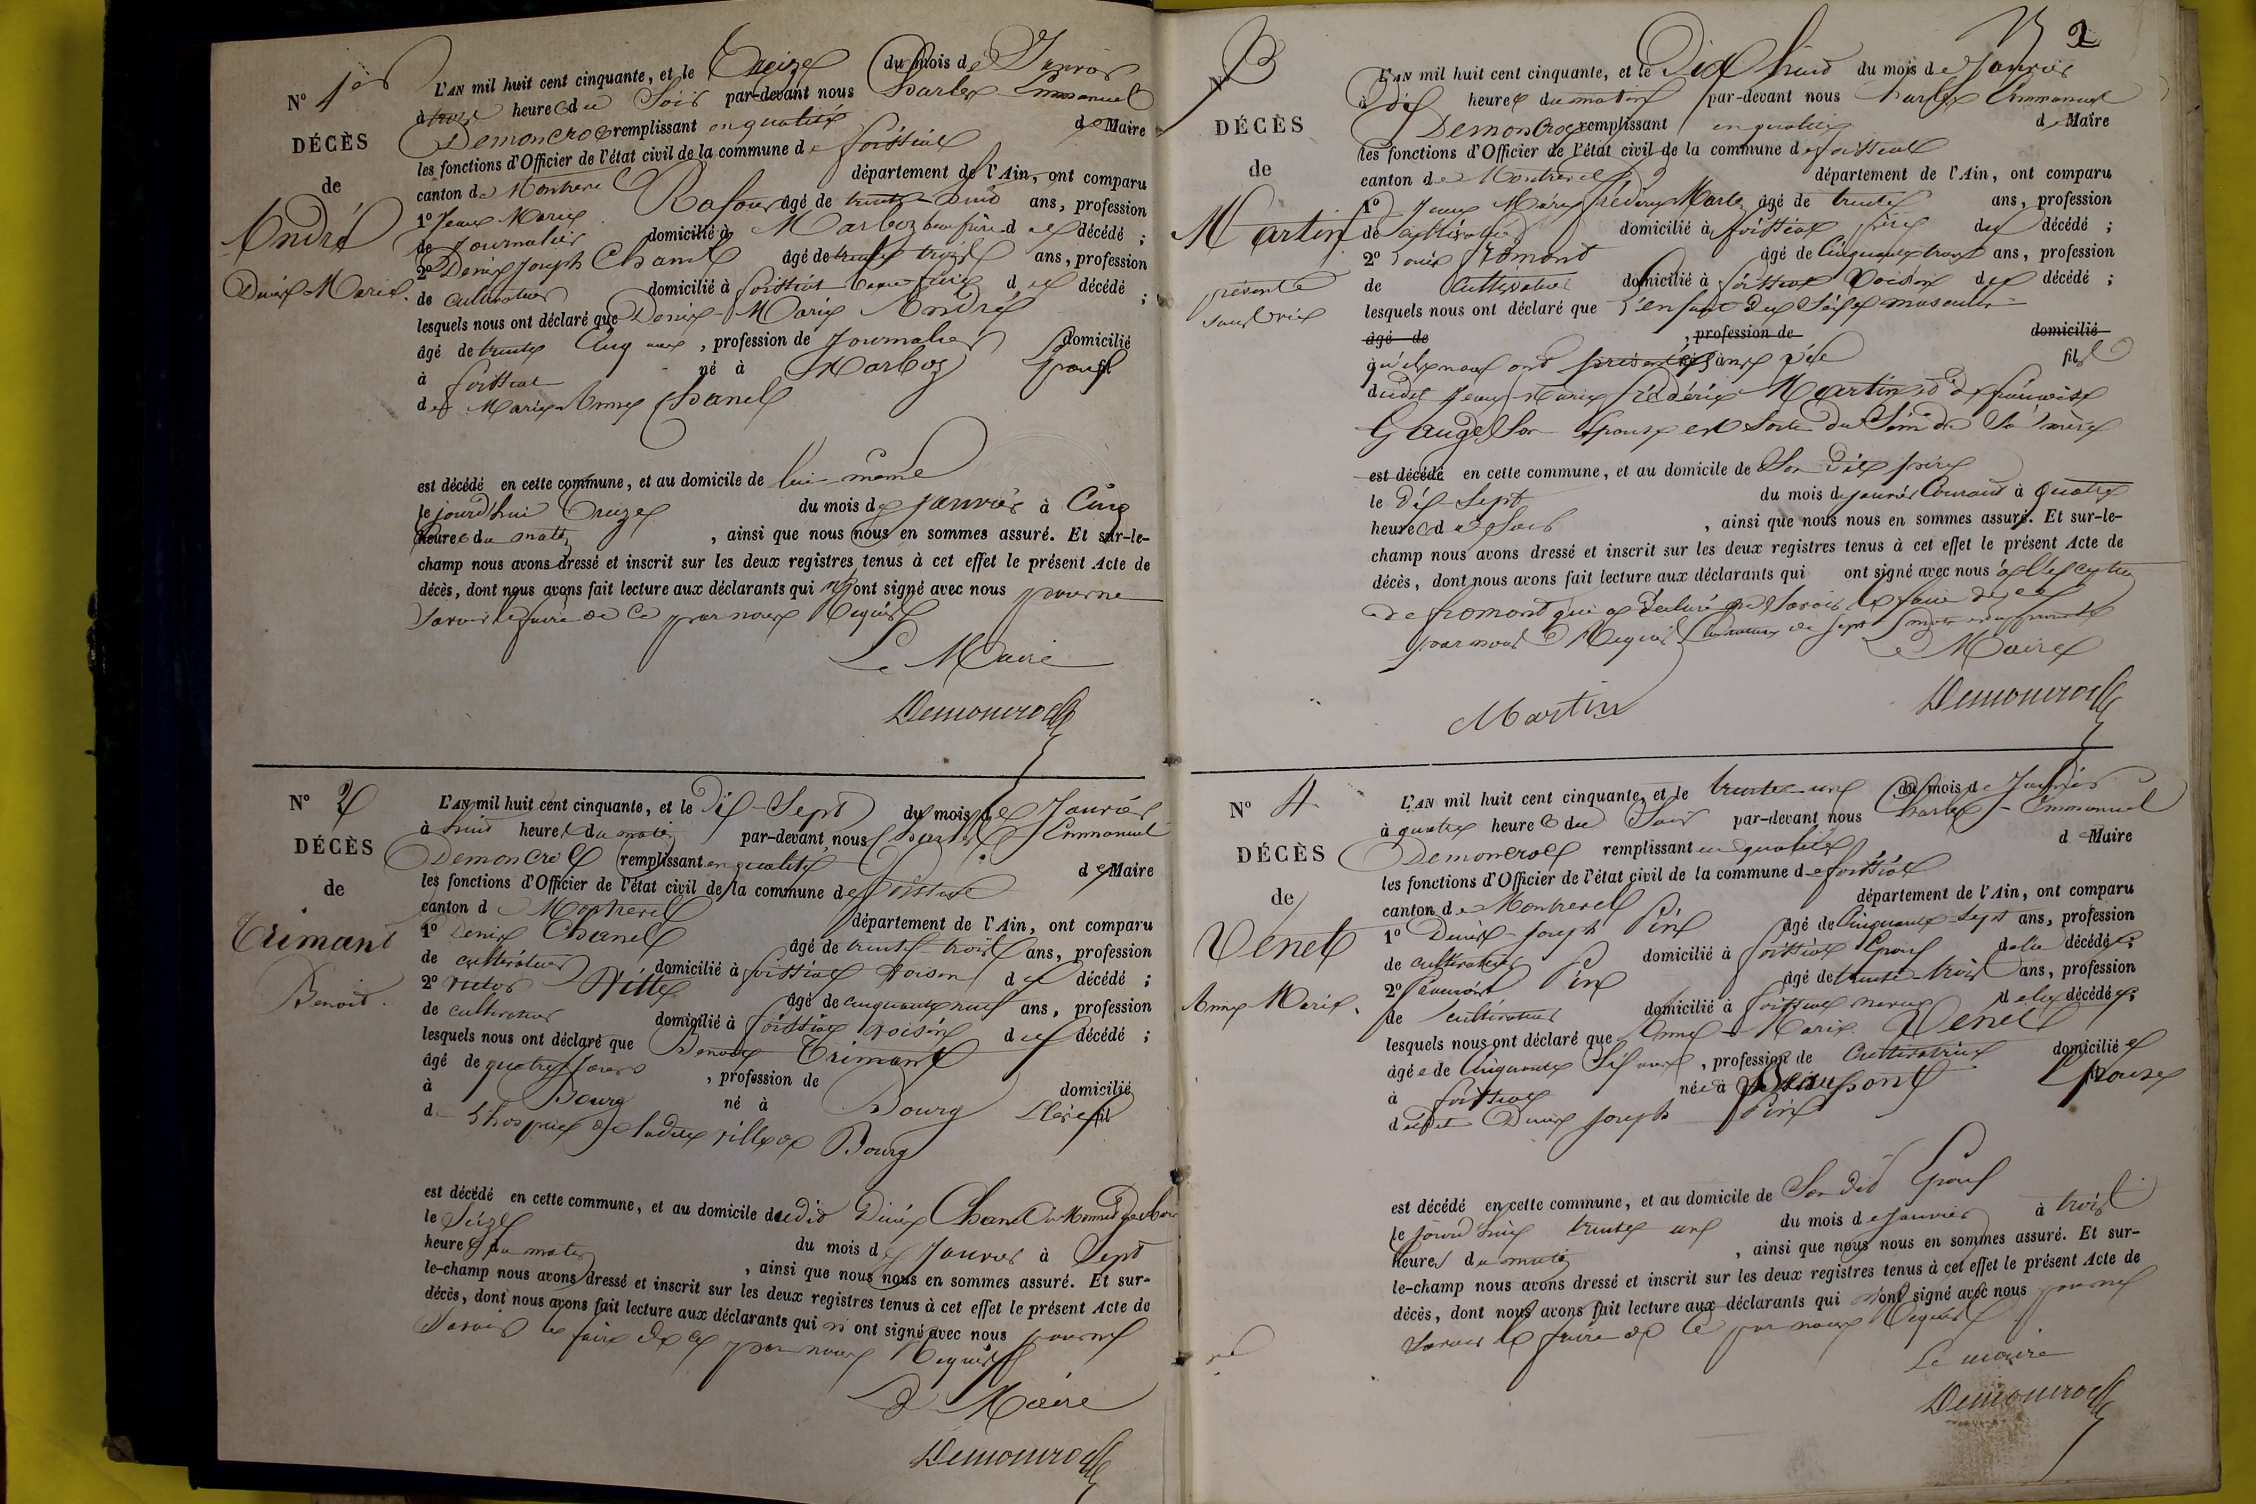 N° 1er
DÉCÈS
de
André
Denis Marie.
L'AN mil huit cent cinquante, et le Treize du mois de Janvier
à trois heures du Soir par-devant nous Charles Emmanuel
Demoncroc remplissant en qualité de Maire
les fonctions d'Officier de l'état civil de la commune de foissiat
canton de Montrevel département de l'Ain, ont comparu
1° Jean Marie Rafour âgé de trente huit ans, profession
de Journalier domicilié à Marboz beau frère du décédé ;
2° Denis Joseph Chanel âgé de trente trois ans, profession
de cultivateur domicilié à foissiat beau frère du décédé ;
lesquels nous ont déclaré que Denis Marie André
âgé de trente cinq ans, profession de Journalier domicilié
à foissiat né à Marboz Epoux fil
de Marie Anne Chanel
est décédé en cette commune, et au domicile de lui même
le jourd'hui Treize du mois de janvier à Cinq
heures du matin, ainsi que nous nous en sommes assuré. Et sur-le-
champ nous avons dressé et inscrit sur les deux registres tenus à cet effet le présent Acte de
décès, dont nous avons fait lecture aux déclarants qui n'ont signé avec nous pour ne
savoir le faire de ce par nous Requis
Le Maire
Demoncroc
N° 2
DÉCÈS
de
Trimant
Benoit.
L'AN mil huit cent cinquante, et le dix-Sept du mois de Janvier
à huit heures du matin par-devant nous Charles Emmanuel
Demoncroc remplissant en qualité de Maire
les fonctions d'Officier de l'état civil de la commune de foissiat
canton de Montrevel département de l'Ain, ont comparu
1° Denis Chanel âgé de trente trois ans, profession
de cultivateur domicilié à foissiat voisin du décédé ;
2° Victor Vitte âgé de cinquante neuf ans, profession
de cultivateur domicilié à foissiat voisin du décédé ;
lesquels nous ont déclaré que Benoit Trimant
âgé de quatre jours, profession de domicilié
à Bourg né à Bourg Elève fil
de l'hospice de ladite ville de Bourg
est décédé en cette commune, et au domicile dudit Denis Chanel
le Seize du mois de Janvier à Sept
heures du matin, ainsi que nous nous en sommes assuré. Et sur-
le-champ nous avons dressé et inscrit sur les deux registres tenus à cet effet le présent Acte de
décès, dont nous avons fait lecture aux déclarants qui n'ont signé avec nous pour ne
Savoir le faire de ce par nous Requis
Le Maire
Demoncroc
2
N° 3
DÉCÈS
de
Martin
présenté
sans vie
L'AN mil huit cent cinquante, et le Dix huit du mois de Janvier
à dix heures du matin par-devant nous Charles Emmanuel
Demoncroc remplissant en qualité de Maire
les fonctions d'Officier de l'état civil de la commune de foissiat
canton de Montrevel département de l'Ain, ont comparu
1° Jean Marie frédéric Martin âgé de trente ans, profession
de cultivateur domicilié à foissiat père du décédé ;
2° Louis fromont âgé de Cinquante trois ans, profession
de Cultivateur domicilié à foissiat Voisin du décédé ;
lesquels nous ont déclaré que l'enfant du Sexe masculin
âgé de , profession de domicilié
qu'ils nous ont présenté sans vie fils
dudit Jean Marie frédéric Martin et de françoise
Gauge Son Epouse est Sorti du Sein de Sa mère
est décédé en cette commune, et au domicile de Son dit père
le dix Sept du mois de janvier Courant à quatre
heures du Soir, ainsi que nous nous en sommes assuré. Et sur-le-
champ nous avons dressé et inscrit sur les deux registres tenus à cet effet le présent Acte de
décès, dont nous avons fait lecture aux déclarants qui ont signé avec nous à l'exception
de fromont qui a déclaré ne Savoir le faire de ce
par nous Requis de Sept mots
Le Maire
Martin
Demoncroc
N° 4
DÉCÈS
de
Venet
Anne Marie.
L'AN mil huit cent cinquante, et le trente-un du mois de Janvier
à quatre heures du Soir par-devant nous Charles-Emmanuel
Demoncroc remplissant en qualité de Maire
les fonctions d'Officier de l'état civil de la commune de foissiat
canton de Montrevel département de l'Ain, ont comparu
1° Denis-Joseph Pin âgé de Cinquante-Sept ans, profession
de cultivateur domicilié à foissiat Epoux de la décédée ;
2° Pin âgé de trente-trois ans, profession
de cultivateur domicilié à foissiat neveu de la décédée ;
lesquels nous ont déclaré que Anne Marie Venet
âgée de Cinquante Six ans, profession de Cultivatrice domiciliée
à foissiat née à Beaupont Epouse
dudit Denis Joseph Pin
est décédé en cette commune, et au domicile de Son dit Epoux
le jourd'hui trente un du mois de Janvier à trois
heures du matin, ainsi que nous nous en sommes assuré. Et sur-
le-champ nous avons dressé et inscrit sur les deux registres tenus à cet effet le présent Acte de
décès, dont nous avons fait lecture aux déclarants qui n'ont signé avec nous pour ne
savoir le faire de ce par nous Requis
Le maire
Demoncroc